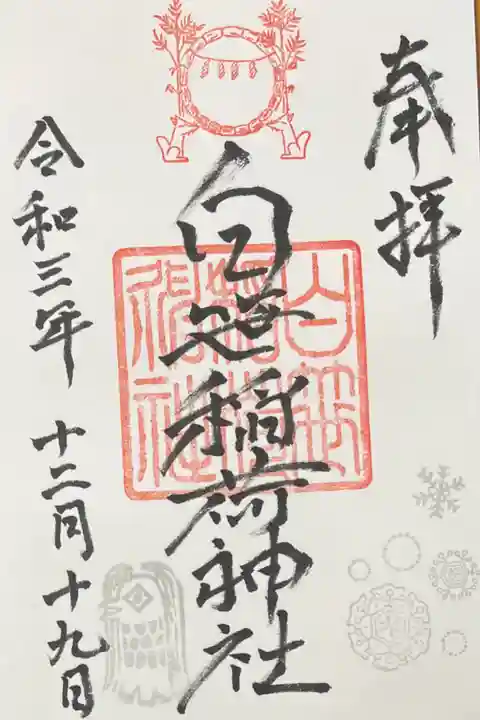 奉拝
白笹稲荷神社
令和三年 十二月十九日